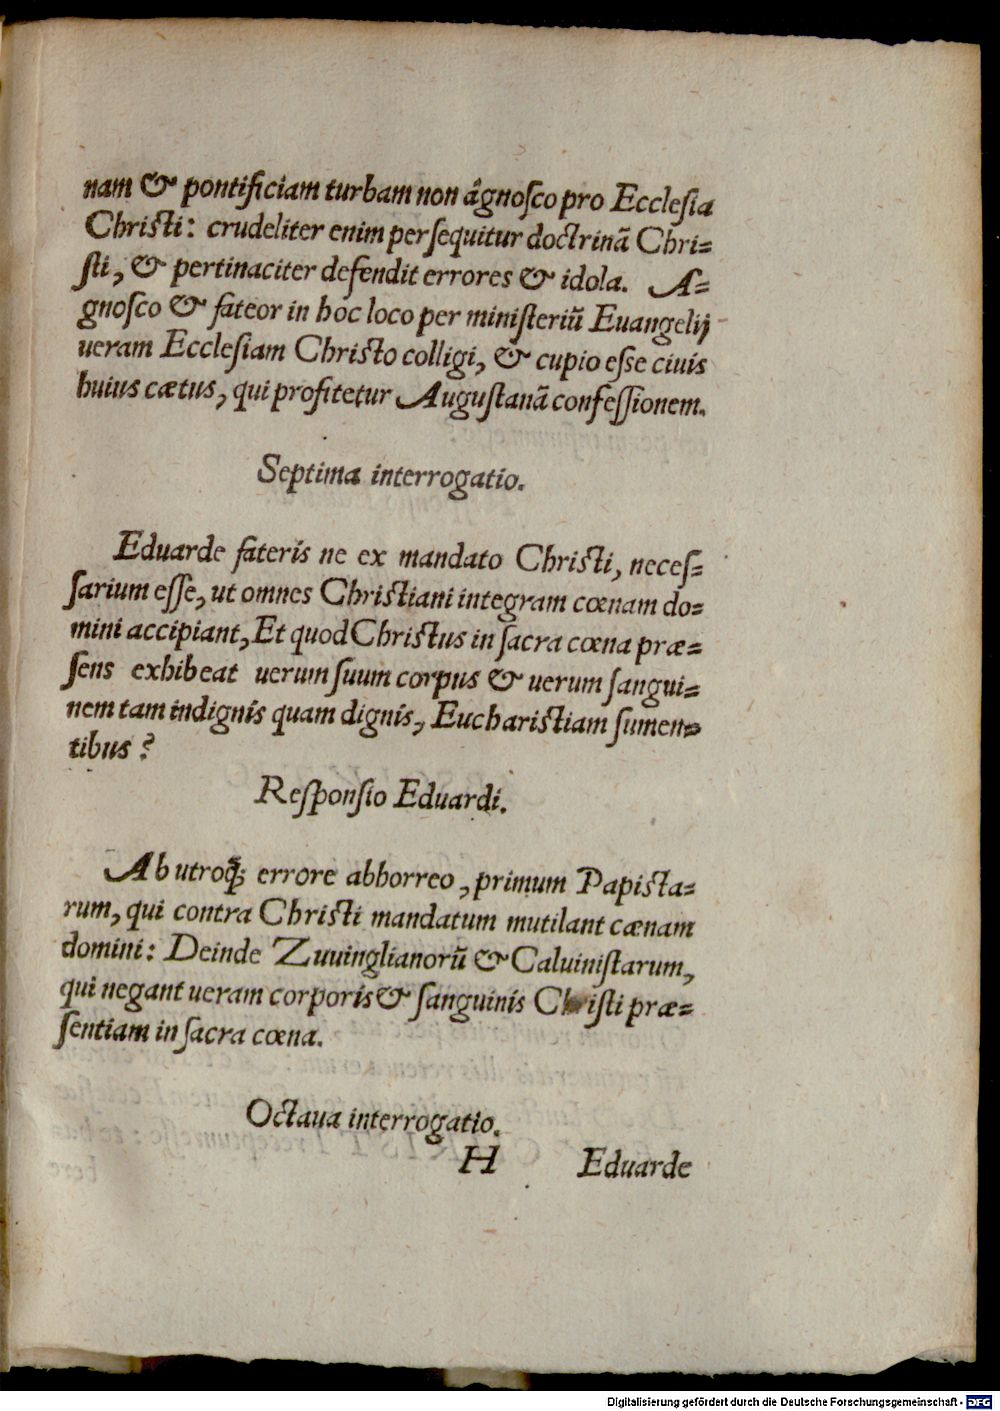 nam & pontificiam turbam non âgnoſco pro Eccleſia
Chriſti: crudeliter enim perſequitur doctrinā Chri=
ſti, & pertinaciter defendit errores & idola. A=
gnoſco & fateor in hoc loco per miniſteriū Euangelij
ueram Eccleſiam Chriſto colligi, & cupio eſſe ciuis
huius cætus, qui profitetur Auguſtanā confeſſionem.
Septima interrogatio.
Eduarde fateris ne ex mandato Chriſti, neceſ=
ſarium eſſe, ut omnes Chriſtiani integram cœnam do=
mini accipiant, Et quod Chriſtus in ſacra cœna præ=
ſens exhibeat uerum ſuum corpus & uerum ſangui=
nem tam indignis quam dignis, Euchariſtiam ſumen=
tibus?
Reſponſio Eduardi.
Ab utroq́; errore abhorreo, primum Papiſta=
rum, qui contra Chriſti mandatum mutilant cænam
domini: Deinde Zuuinglianorū & Caluiniſtarum,
qui negant ueram corporis & ſanguinis Chriſti præ=
ſentiam in ſacra cœna.
Octaua interrogatio.
H Eduarde
Digitalisierung gefördert durch die Deutsche Forschungsgemeinschaft - DFG